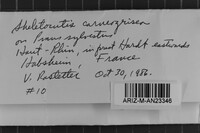 Skeletocutis carneogrisea
on Pinus sylvestris
Haut-Rhin, in front Hardt eastwards
Habsheim, France
V. Rastetter Oct 30, 1986.
#10
ARIZ-M-AN23346